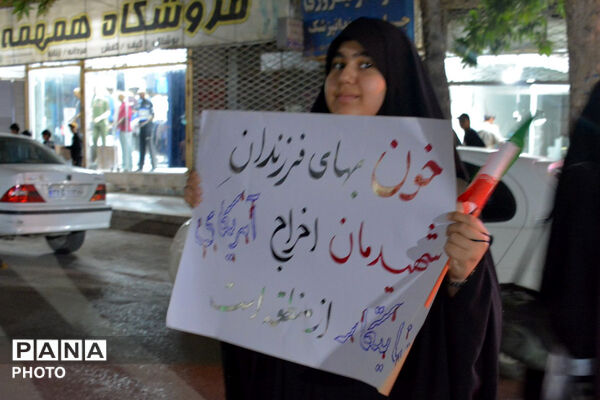 فروشگاه همهمه
خون بهای فرزندانِ
شهیدمان اخراج آمریکای
جنایتکار از منطقه است
PANA
PHOTO